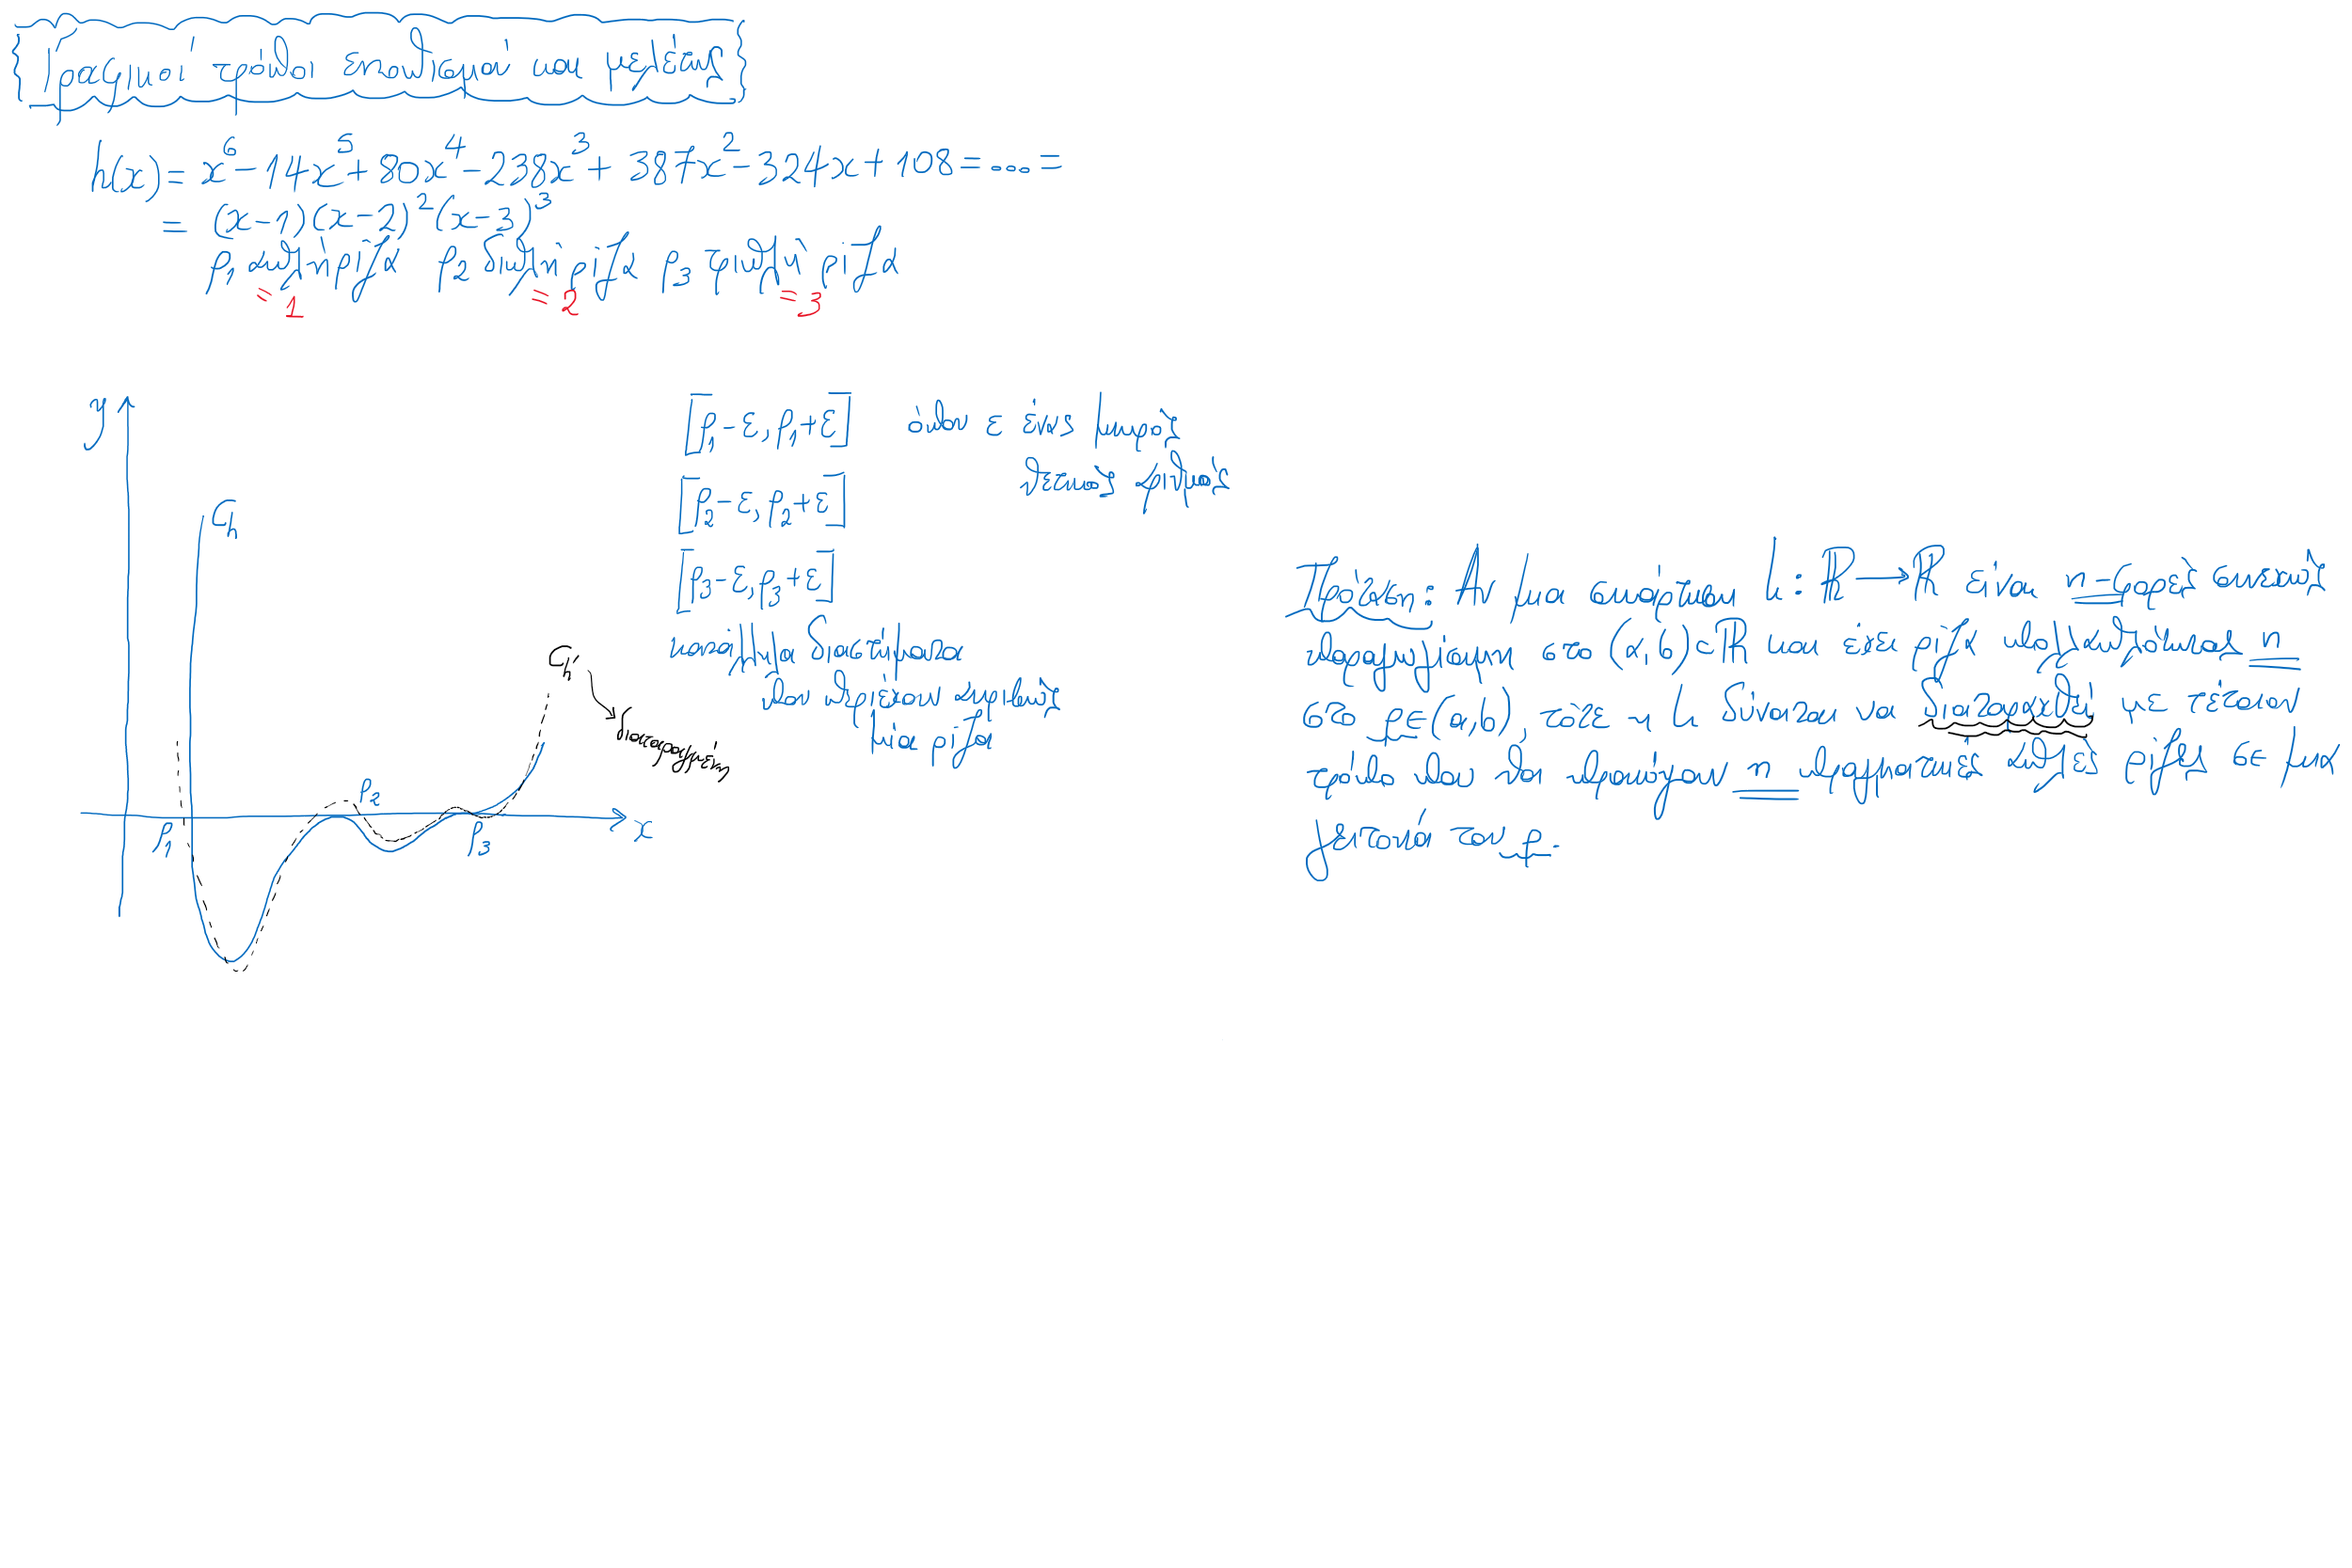 Γραφικοί τρόποι εντοπισμού και μελέτης
h(x) = x⁶ - 14x⁵ + 80x⁴ - 238x³ + 387x² - 324x + 108 = .... =
= (x-1)(x-2)²(x-3)³
ρ₁ απλή ρίζα ρ₂ διπλή ρίζα ρ₃ τριπλή ρίζα
= 1 = 2 = 3
y
C_h
ρ₁
ρ₂
ρ₃
x
C_h'
διαταραγμένη
[ρ₁-ε, ρ₁+ε] όπου ε ένας μικρός
θετικός αριθμός
[ρ₂-ε, ρ₂+ε]
[ρ₃-ε, ρ₃+ε]
κατάλληλα διαστήματα
που περιέχουν ακριβώς
μία ρίζα
Πρόταση: Αν μια συνάρτηση h: ℝ → ℝ είναι n-φορές συνεχώς
παραγωγίσιμη στο (α,b) ⊂ ℝ και έχει ρίζα πολλαπλότητας n
στο ρ ∈ (a,b), τότε η h δύναται να διαταραχθεί με τέτοιον
τρόπο που θα προκύψουν n πραγματικές απλές ρίζες σε μια
γειτονιά του ρ.